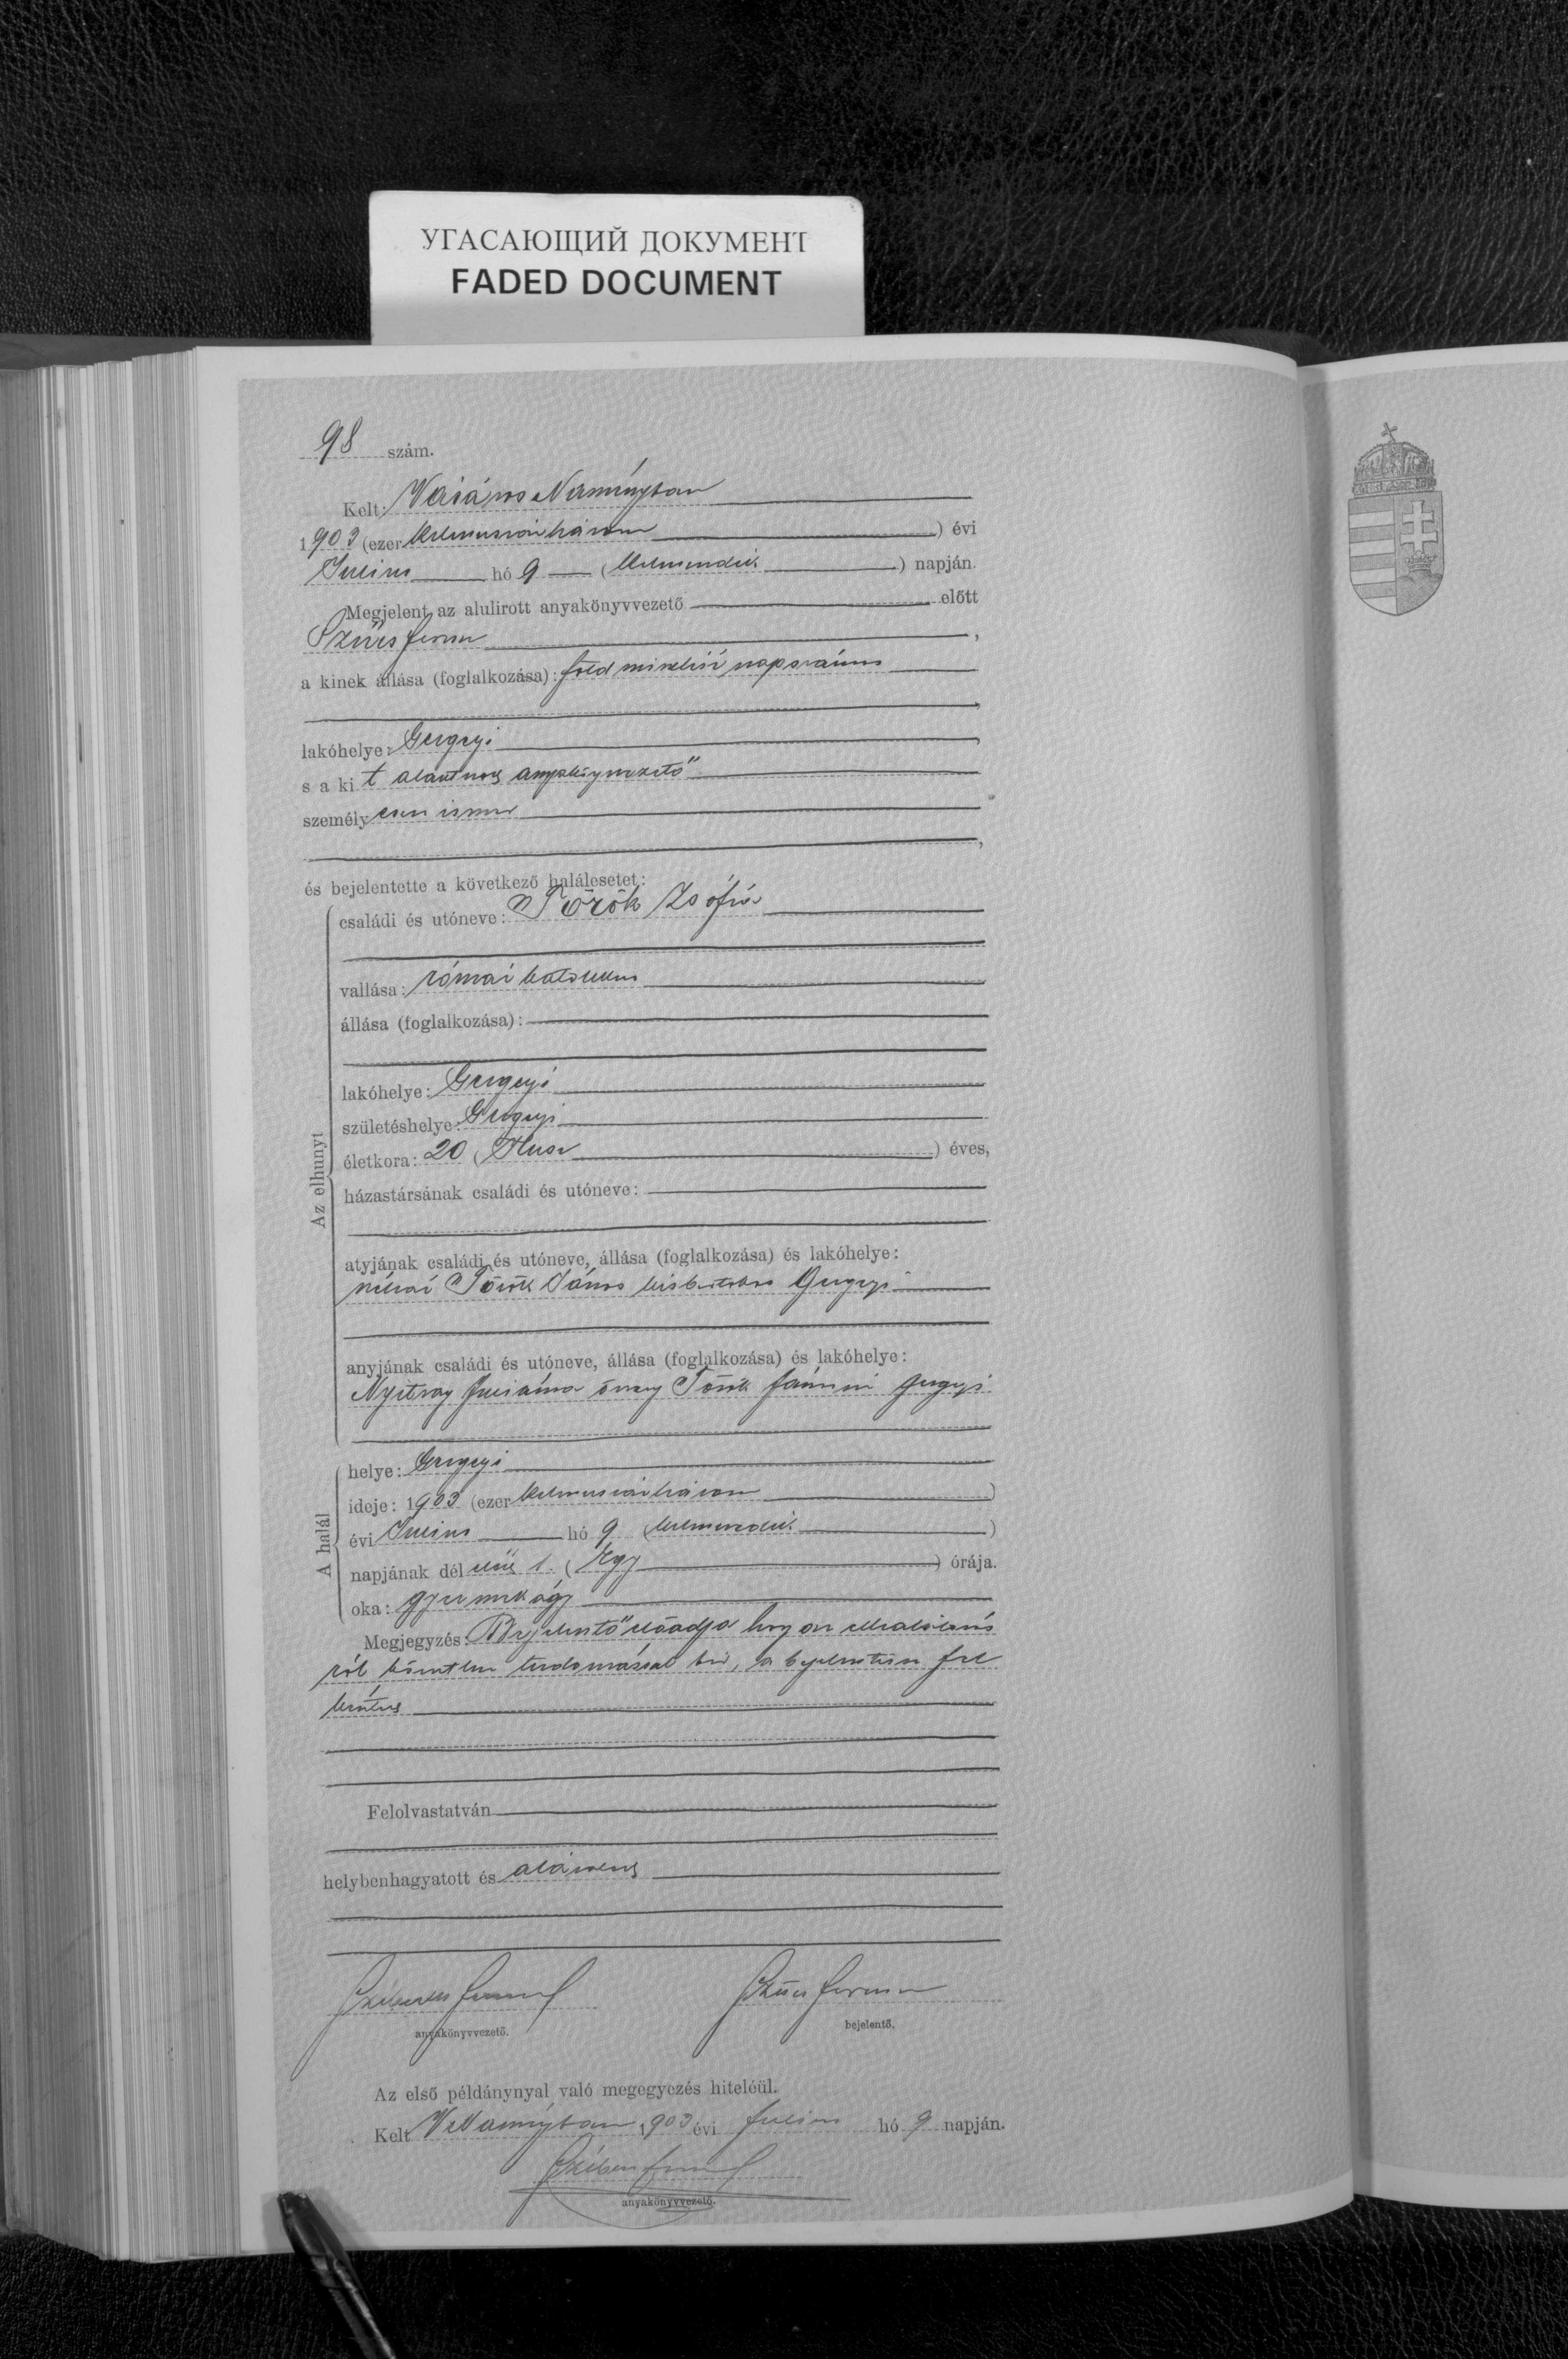 УГАСАЮЩИЙ ДОКУМЕНТ
FADED DOCUMENT
98 szám.
Kelt: Vásáros Naményban
1903 (ezer kilenczszázhárom) évi
Julius hó 9 (kilenczedik) napján.
Megjelent az alulirott anyakönyvvezető előtt
Szűcs Ferencz
a kinek állása (foglalkozása): földmivelő napszámos
lakóhelye: Gergelyi
s a kit alantirott anyakönyvvezető
személyesen ismer
és bejelentette a következő halálesetet:
Az elhunyt
családi és utóneve: Török Zsófia
vallása: római katolikus
állása (foglalkozása):
lakóhelye: Gergelyi
születéshelye: Gergelyi
életkora: 20 (Husz) éves,
házastársának családi és utóneve:
atyjának családi és utóneve, állása (foglalkozása) és lakóhelye:
néhai Török János kisbirtokos Gergelyi
anyjának családi és utóneve, állása (foglalkozása) és lakóhelye:
Nyitray Juliánna özvegy Török Jánosné Gergelyi
A halál
helye: Gergelyi
ideje: 1903 (ezer kilenczszázhárom)
évi Julius hó 9 (kilenczedik)
napjának dél előtt 1. (Egy) órája.
oka: gyermekágy
Megjegyzés: Bejelentő előadja hogy az elhalálozás
ról közvetlen tudomással bir, a bejelentésre fel
kéretett
Felolvastatván
helybenhagyatott és aláiratott
anyakönyvvezető.
Szűcs Ferencz
bejelentő.
Az első példánynyal való megegyezés hiteléül.
Kelt VNaményban 1903 évi Julius hó 9 napján.
anyakönyvvezető.